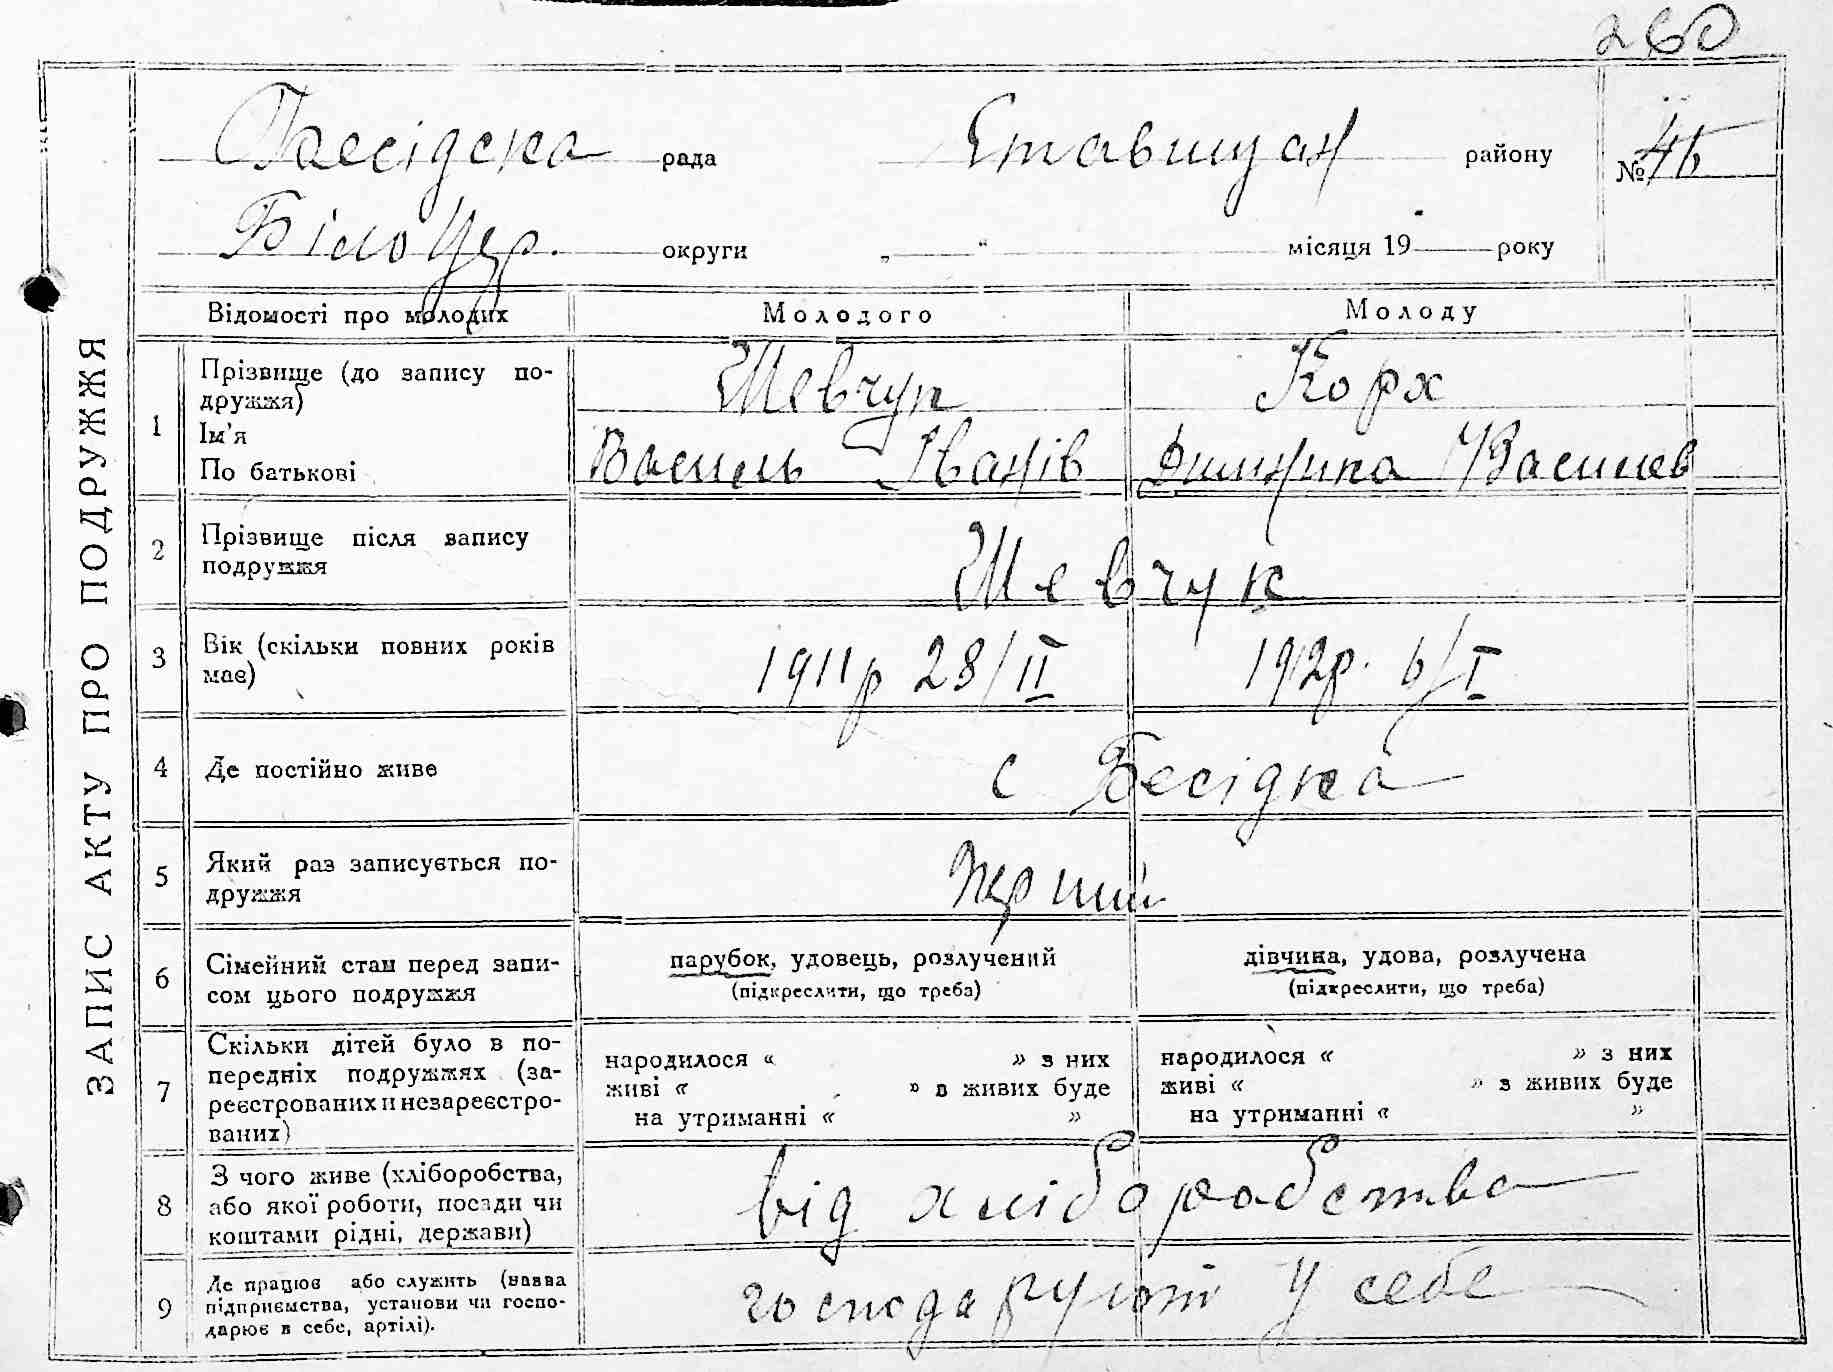 260
Бесідска рада Ставищан району № 46
Білоцер. округи „ — “ місяця 19 — року
Відомості про молодих Молодого Молоду
ЗАПИС АКТУ ПРО ПОДРУЖЖЯ
1 Прізвище (до запису по-
дружжя) Шевчук Корж
Ім'я
По батькові Василь Іванів Василів
2 Прізвище після запису
подружжя Шевчук
3 Вік (скільки повних років
має) 1911р 28/II 1912р. 6/I
4 Де постійно живе с Бесідка
5 Який раз записується по-
дружжя Перший
6 Сімейний стан перед запи-
сом цього подружжя
парубок, удовець, розлучений
(підкреслити, що треба)
дівчина, удова, розлучена
(підкреслити, що треба)
7 Скільки дітей було в по-
передніх подружжях (за-
реєстрованих и незареєстро-
ваних)
народилося « » з них
живі « » в живих буде
на утриманні « »
народилося « » з них
живі « » з живих буде
на утриманні « »
8 З чого живе (хліборобства,
або якої роботи, посади чи
коштами рідні, держави)
від хліборобства
9 Де працює або служить (назва
підприємства, установи чи госпо-
дарює в себе, артілі).
господарують у себе